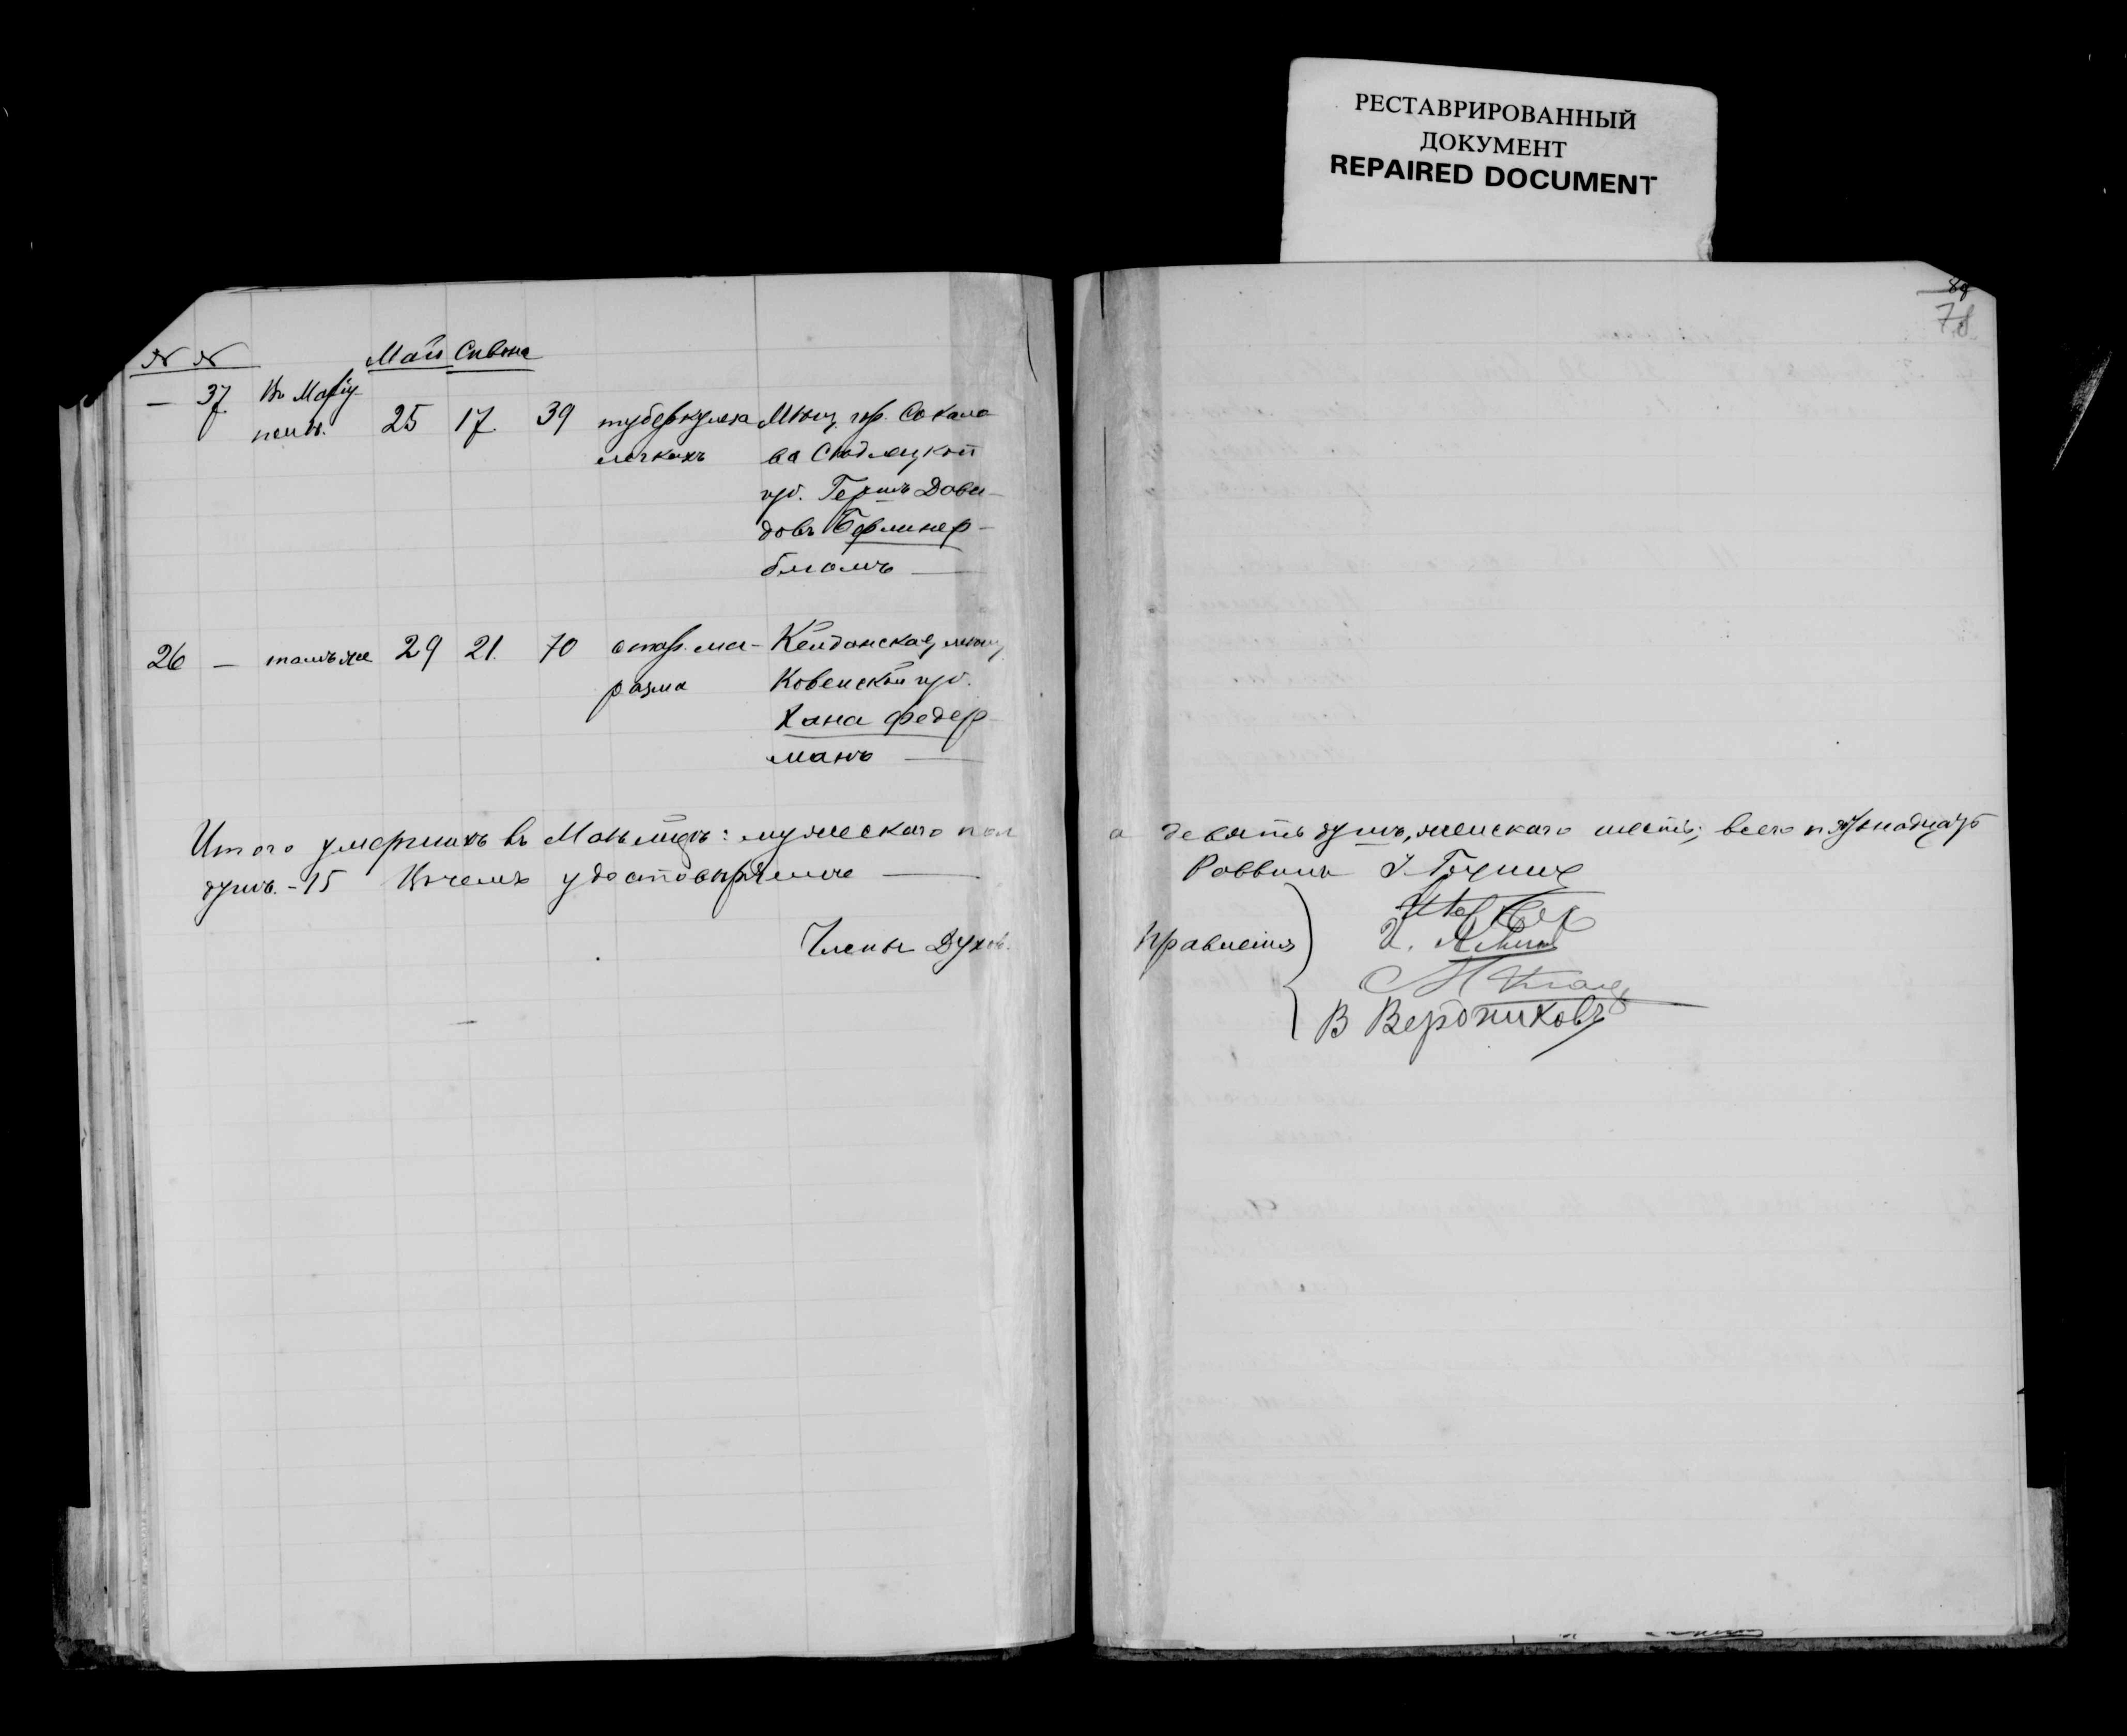 РЕСТАВРИРОВАННЫЙ
ДОКУМЕНТ
REPAIRED DOCUMENT
78
№ №
Май Сивона
— 37 Въ Маріу
полѣ. 25 17 39 туберкулеза Мѣщ. гор. Сокола
легкихъ ва Сѣдлецкой
губ. Гершъ Дови-
довъ Берлинер-
блатъ —
26 — тамъ же 29 21. 70 старч. ма- Кейданская мѣщ.
разма Ковенской губ.
Хана Федер-
манъ —
Итого умершихъ въ Маѣ мцѣ: мужескаго пол
а девять душъ, женскаго шесть; всего пятнадцать
душъ. - 15 Въ чемъ удостовѣряемъ —
Раввинъ
Члены Духов.
Правленія
В Вердниковъ